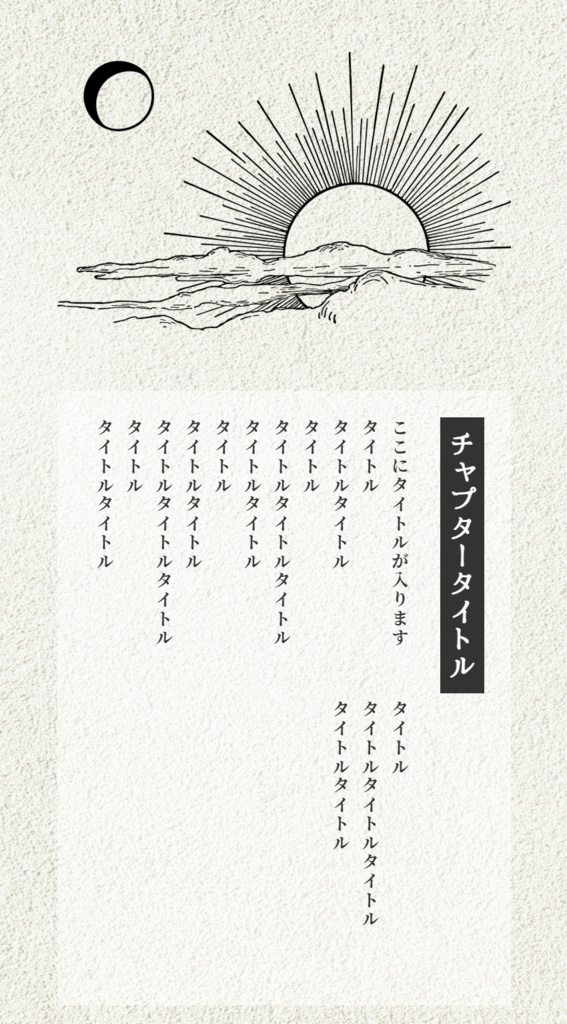 チャプタータイトル
ここにタイトルが入ります
タイトル
タイトルタイトル
タイトル
タイトルタイトルタイトル
タイトルタイトル
タイトル
タイトルタイトル
タイトルタイトルタイトル
タイトル
タイトルタイトル
タイトル
タイトルタイトルタイトル
タイトルタイトル